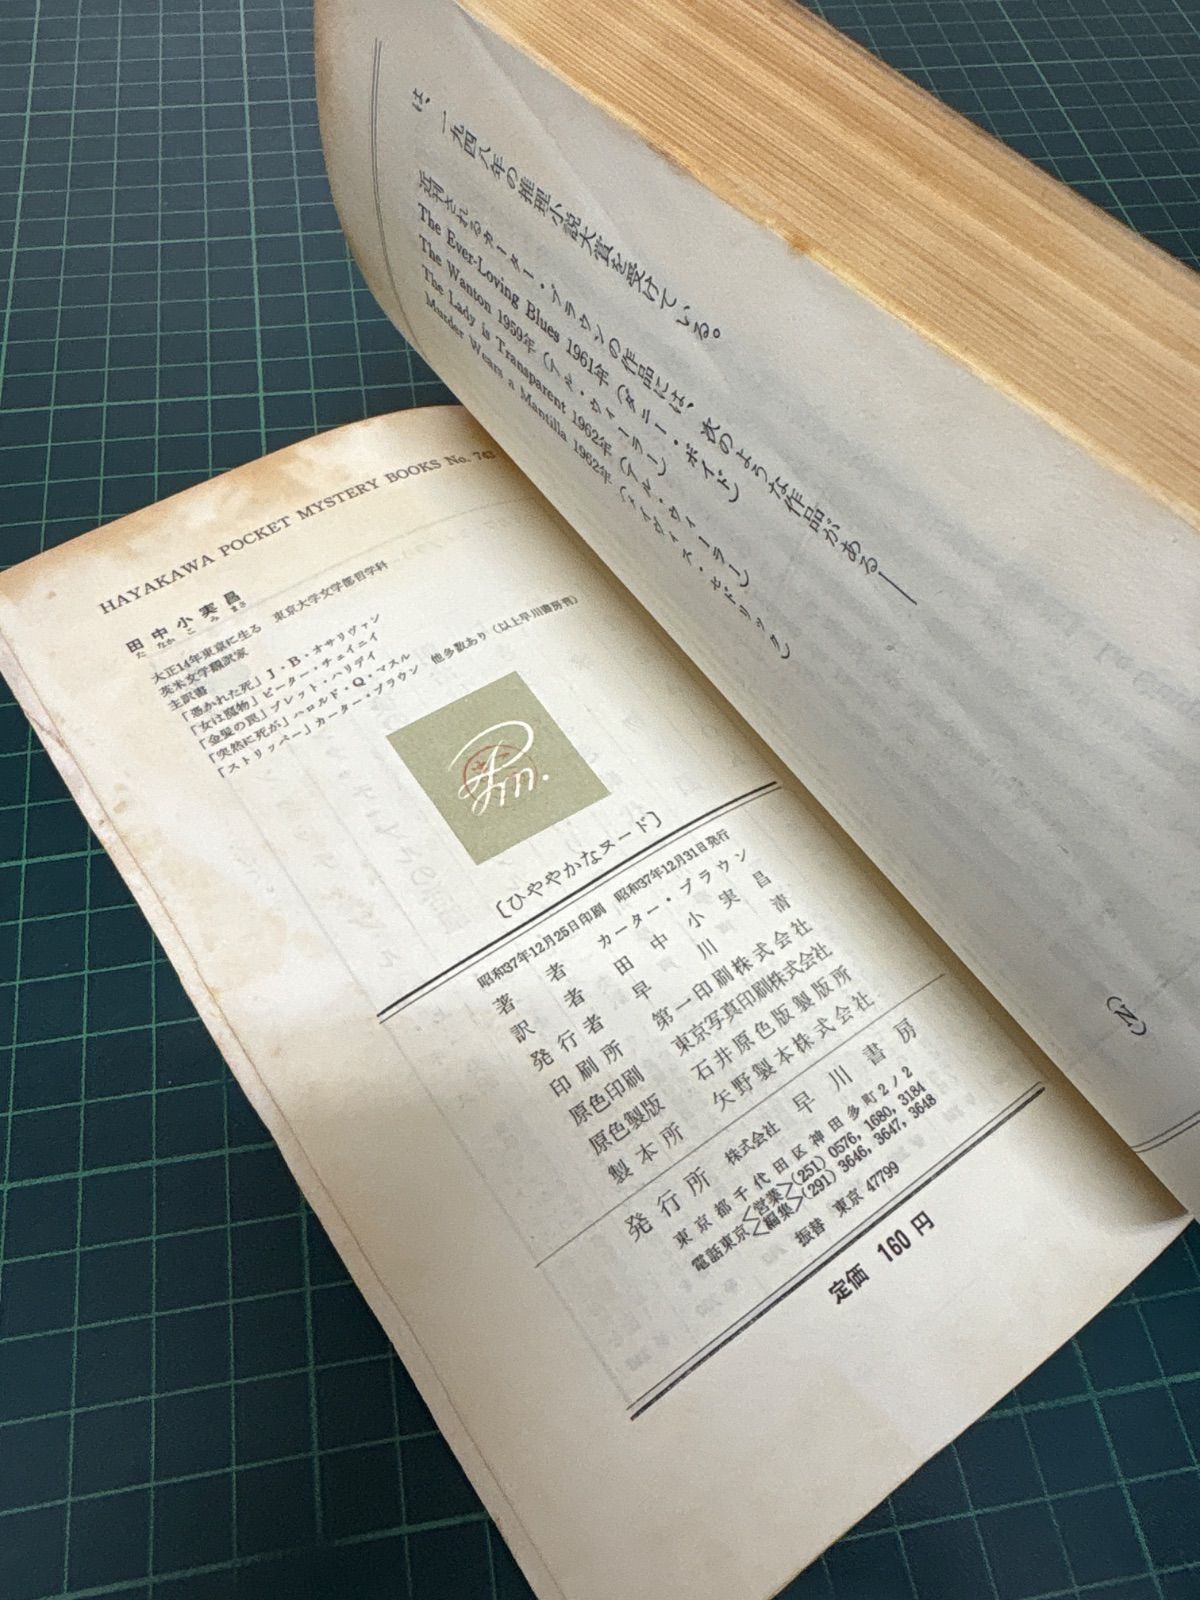 は、一九四八年の推理小説大賞を受けている。
近刊されるカーター・ブラウンの作品には、次のような作品がある――
The Ever-Loving Blues 1961年（ダニー・ボイド）
The Wanton 1959年（アル・ウィーラー）
The Lady is Transparent 1962年（アル・ウィーラー）
Murder Wears a Mantilla 1962年（メイヴィス・セドリッツ）
(N)
HAYAKAWA POCKET MYSTERY BOOKS No. 743
田中小実昌
たなかこみまさ
大正14年東京に生る 東京大学文学部哲学科
英米文学翻訳家
主訳書
「憑かれた死」J・B・オサリヴァン
「女は魔物」ピーター・チェイニイ
「金髪の罠」ブレット・ハリデイ
「突然に死が」ハロルド・Q・マスル
「ストリッパー」カーター・ブラウン 他多数あり（以上早川書房刊）
［ひややかなヌード］
昭和37年12月25日印刷 昭和37年12月31日発行
著者 カーター・ブラウン
訳者 田中小実昌
発行者 早川清
印刷所 第一印刷株式会社
原色印刷 東京写真印刷株式会社
原色製版 石井原色版製版所
製本所 矢野製本株式会社
発行所 株式会社 早川書房
東京都千代田区神田多町2ノ2
電話東京<営業>(251) 0576, 1680, 3184
<編集>(291) 3646, 3647, 3648
振替 東京 47799
定価 160円